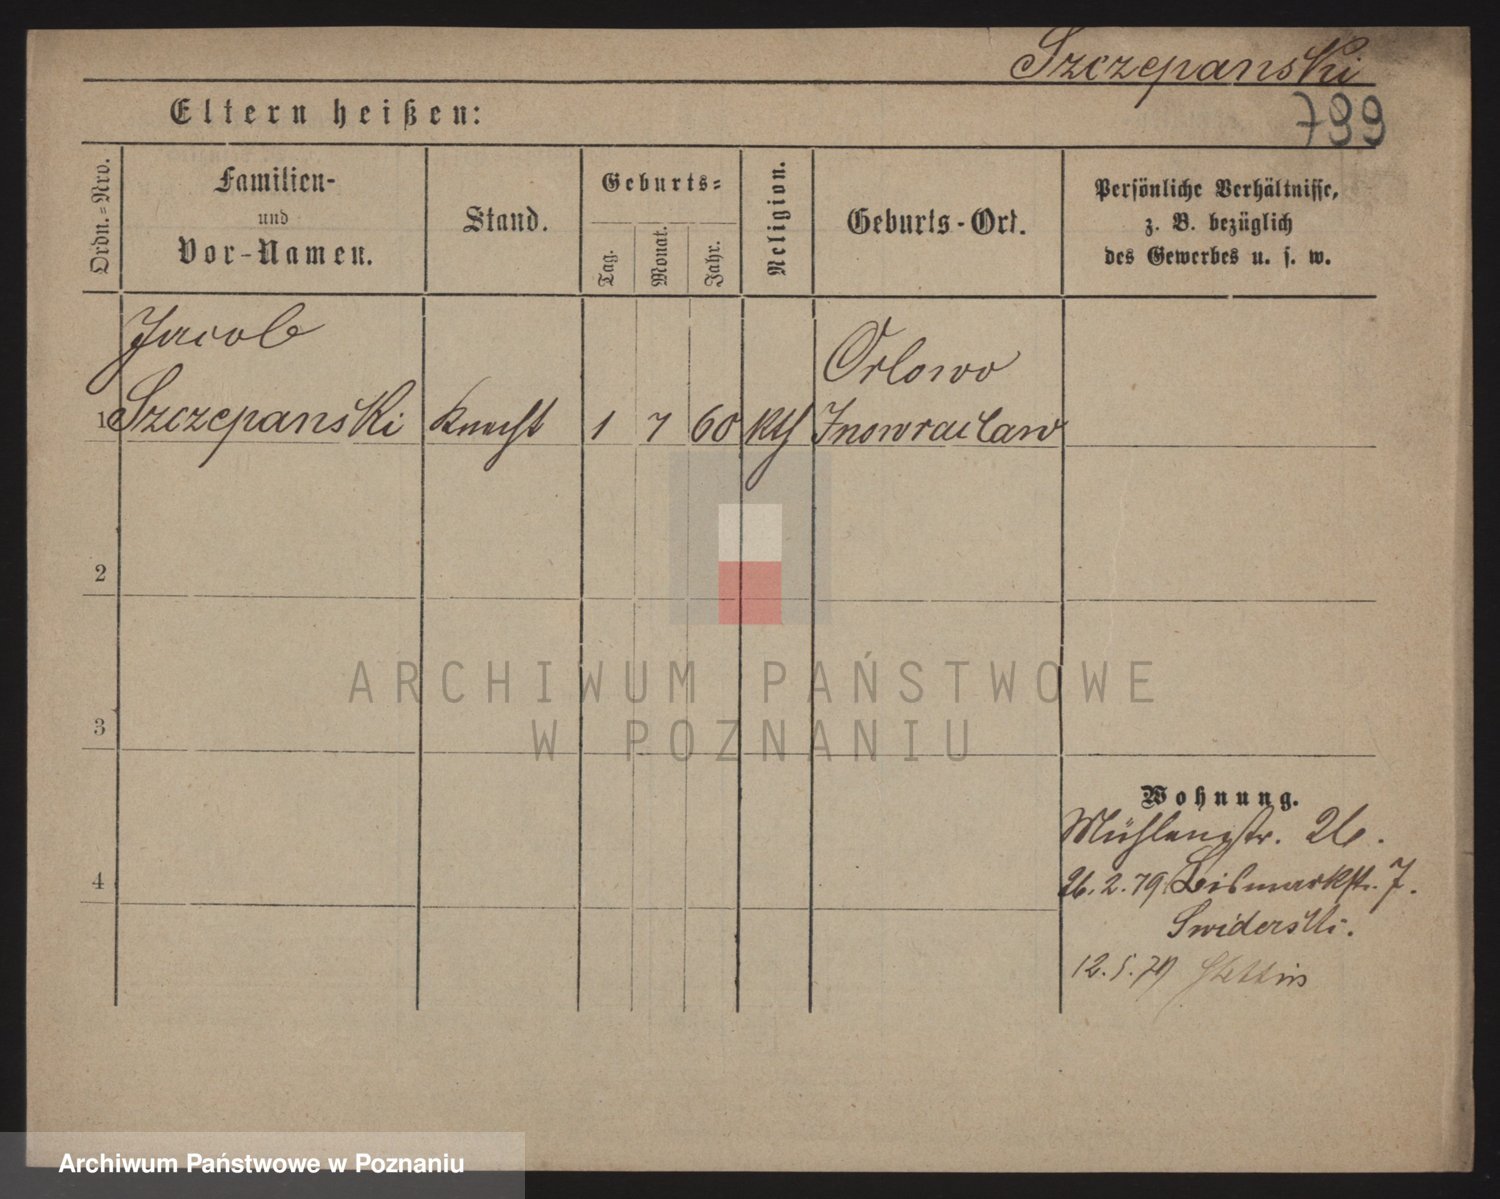 Szczepanski
799
Eltern heißen:
Ordn.-Nro.
Familien-
und
Vor-Namen.
Stand.
Geburts-
Tag.
Monat.
Jahr.
Religion.
Geburts-Ort.
Persönliche Verhältnisse,
z. B. bezüglich
des Gewerbes u. s. w.
Jacob
Orlowo
1 Szczepanski Knecht 1 7 60 kth Inowraclaw
2
3
4
ARCHIWUM PAŃSTWOWE
W POZNANIU
Wohnung.
Mühlenstr. 26.
26.2.79 Bismarkstr. 7.
Swiderski.
12.5.79 Stettin
Archiwum Państwowe w Poznaniu